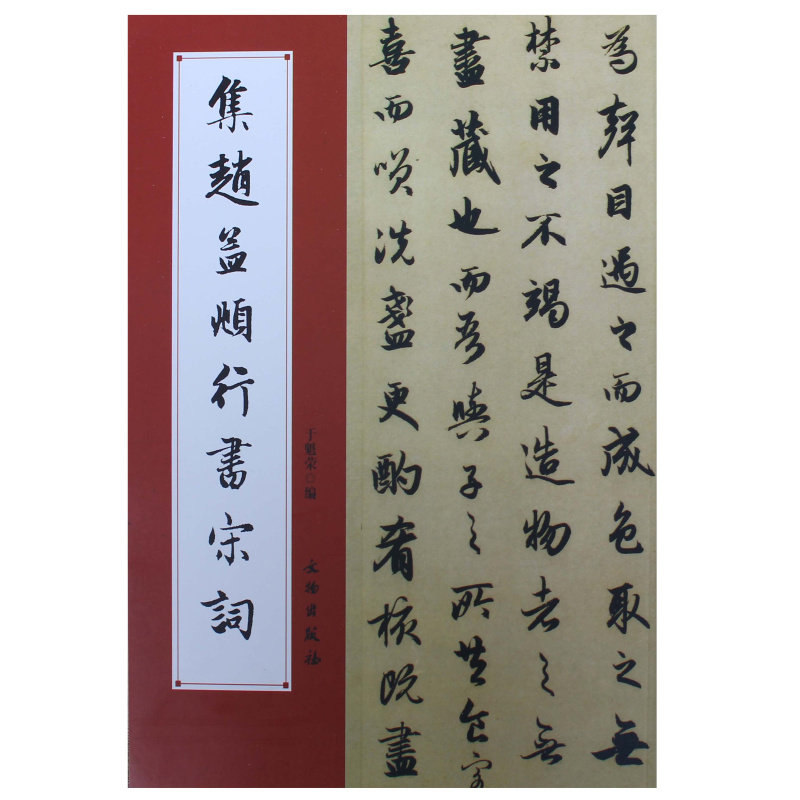 集趙孟頫行書宋詞
于魁荣○編
文物出版社
為聲目遇之而成色取之無
禁用之不竭是造物者之無
盡藏也而吾與子之所共食客
喜而咲洗盞更酌肴核既盡